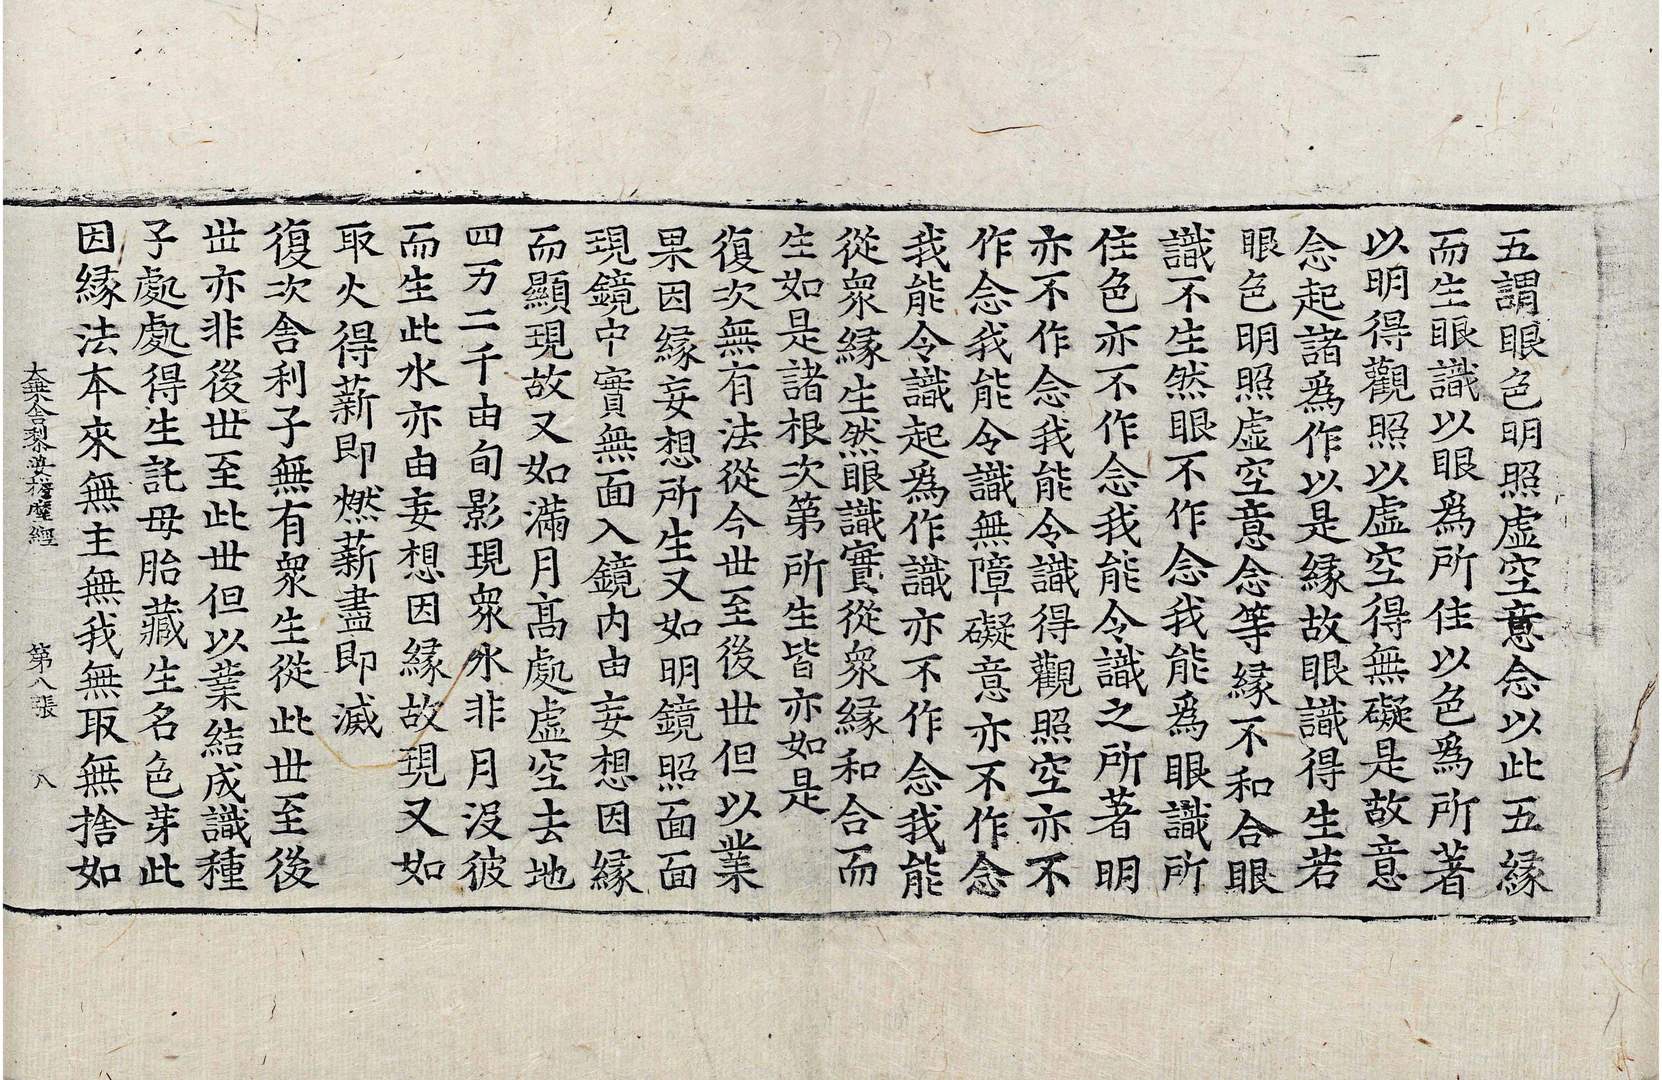 五謂眼色明照虚空意念以此五縁
而生眼識以眼爲所住以色爲所著
以明得觀照以虚空得無礙是故意
念起諸爲作以是縁故眼識得生若
眼色明照虚空意念等縁不和合眼
識不生然眼不作念我能爲眼識所
住色亦不作念我能令識之所著明
亦不作念我能令識得觀照空亦不
作念我能令識無障礙意亦不作念
我能令識起爲作識亦不作念我能
從衆縁生然眼識實從衆縁和合而
生如是諸根次第所生皆亦如是
復次無有法從今世至後世但以業
果因縁妄想所生又如明鏡照面面
現鏡中實無面入鏡内由妄想因縁
而顯現故又如滿月髙處虚空去地
四万二千由旬影現衆水非月没彼
而生此水亦由妄想因縁故現又如
取火得薪即燃薪盡即滅
復次舍利子無有衆生從此世至後
世亦非後世至此世但以業結成識種
子處處得生託母胎藏生名色芽此
因縁法本來無主無我無取無捨如
大乘舍黎娑擔摩經 第八張 八